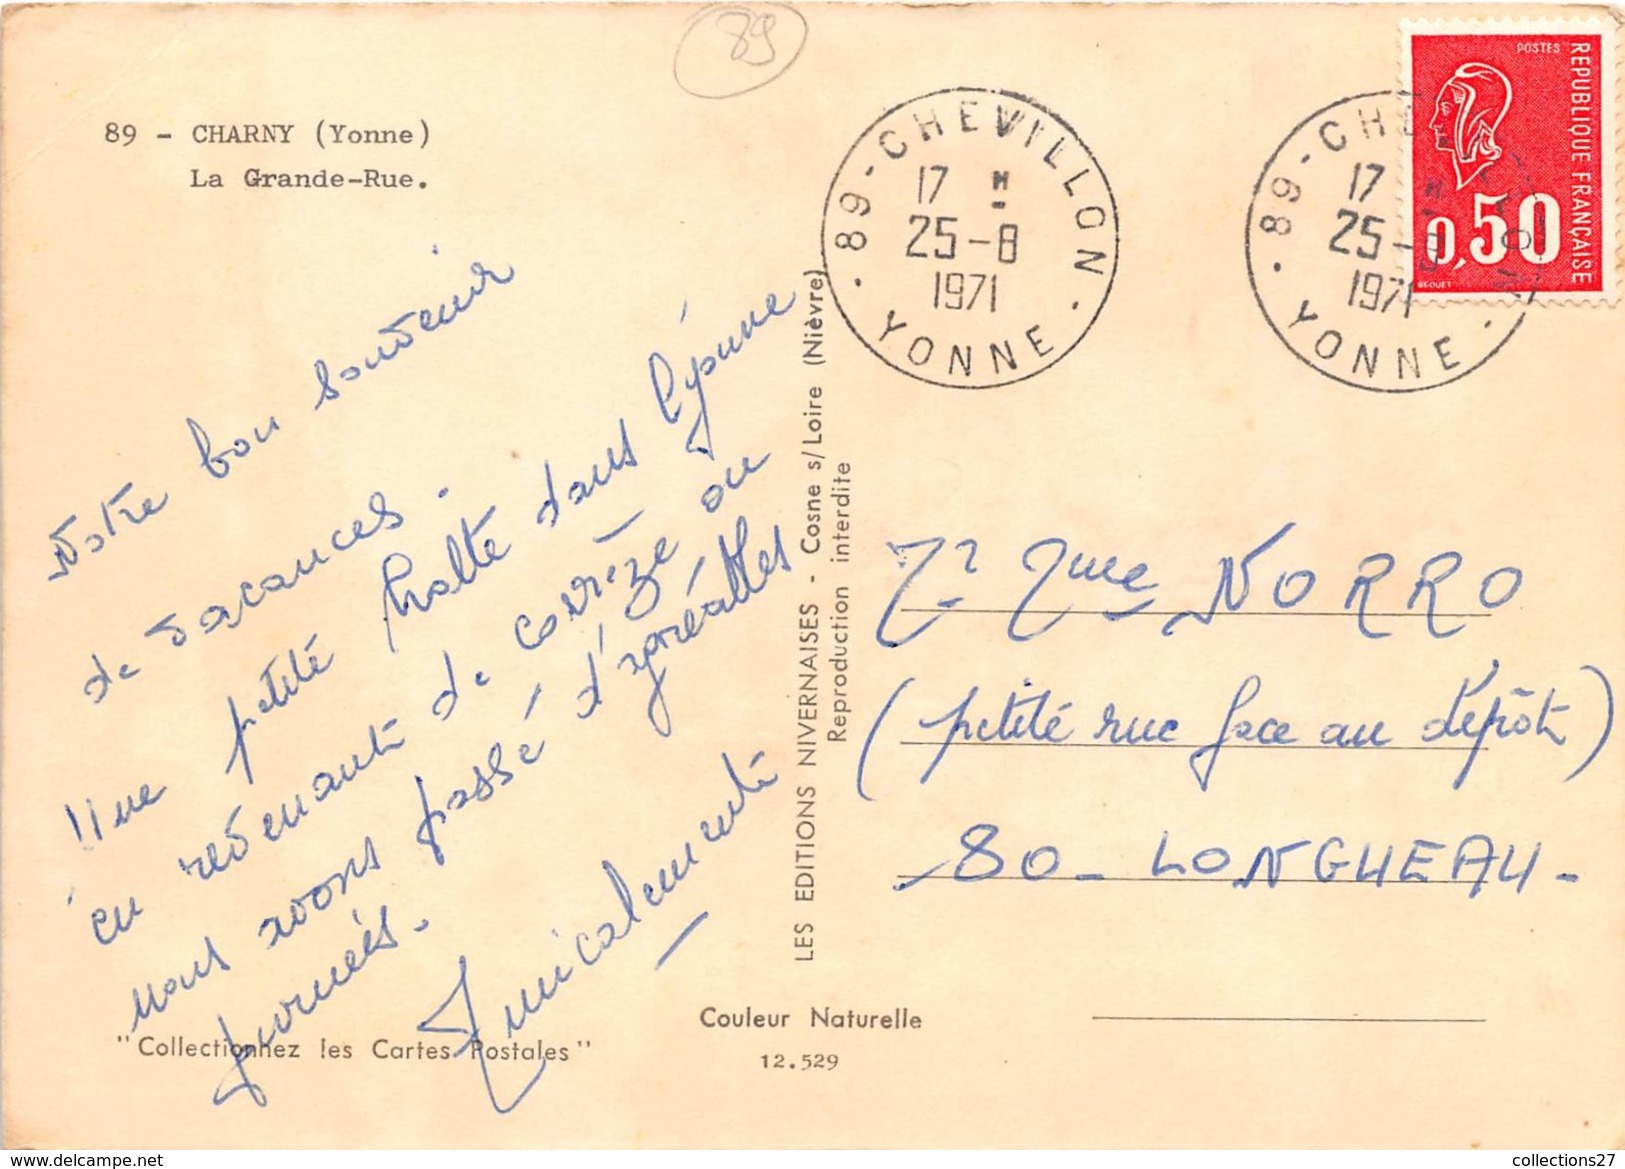 89
89 - CHARNY (Yonne)
La Grande-Rue.
Notre bon souvenir
de vacances.
Une petite halte dans l'yonne
en revenant de corrèze ou
nous avons passé d'agréables
journées.
Amicalement
"Collectionnez les Cartes Postales"
LES EDITIONS NIVERNAISES - Cosne s/Loire (Nièvre)
Reproduction interdite
Couleur Naturelle
12.529
89 - CHEVILLON
17 H
25-8
1971
YONNE
89 - CHE
17 H
25-
1971
YONNE
POSTES
REPUBLIQUE FRANÇAISE
0,50
BEQUET
Mr Mme NORRO
(petite rue face au dépôt)
80 - LONGUEAU -
collections27